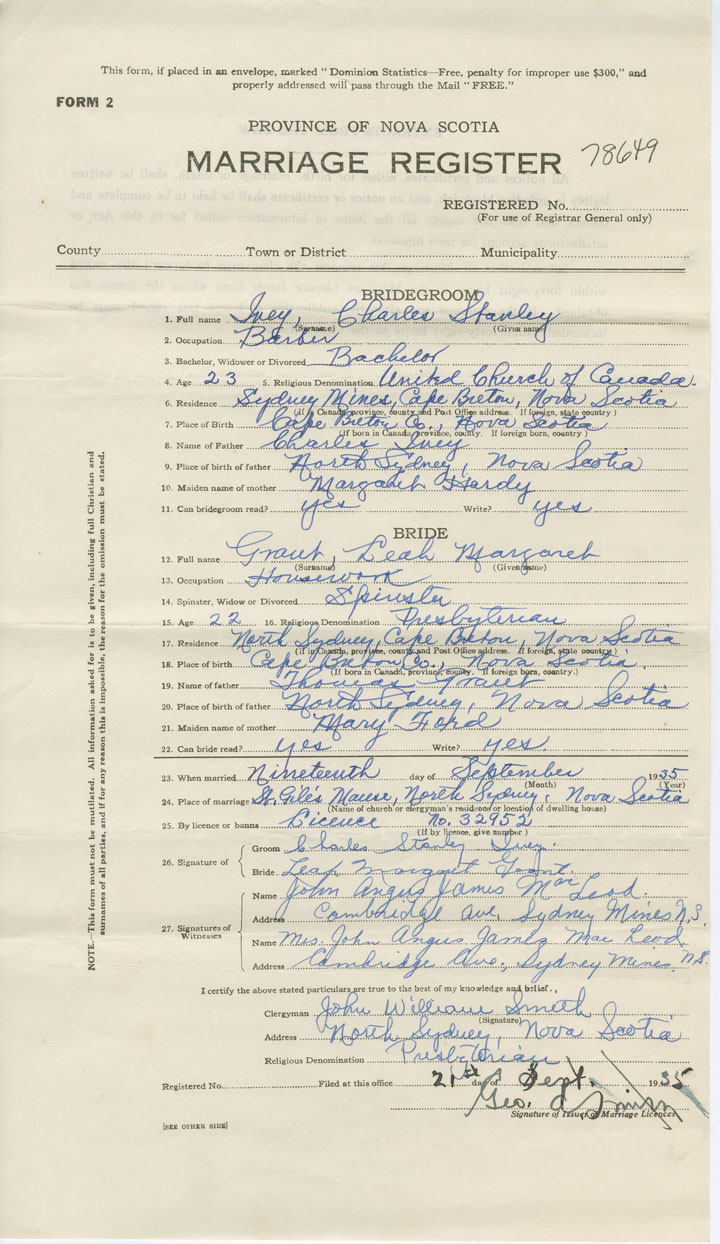 This form, if placed in an envelope, marked "Dominion Statistics—Free, penalty for improper use $300," and
properly addressed will pass through the Mail "FREE."
FORM 2
PROVINCE OF NOVA SCOTIA
MARRIAGE REGISTER 78649
REGISTERED No.
(For use of Registrar General only)
County Town or District Municipality
BRIDEGROOM
1. Full name Ivey, Charles Stanley
(Surname) (Given name)
2. Occupation Barber
3. Bachelor, Widower or Divorced Bachelor
4. Age 23 5. Religious Denomination United Church of Canada.
6. Residence Sydney Mines, Cape Breton, Nova Scotia
(If in Canada, province, county and Post Office address. If foreign, state country)
7. Place of Birth Cape Breton Co., Nova Scotia
(If born in Canada, province, county. If foreign born, country)
8. Name of Father Charles Ivey
9. Place of birth of father North Sydney, Nova Scotia
10. Maiden name of mother Margaret Hardy
11. Can bridegroom read? yes Write? yes
BRIDE
12. Full name Grant, Leah Margaret
(Surname) (Given name)
13. Occupation Housework
14. Spinster, Widow or Divorced Spinster
15. Age 22 16. Religious Denomination Presbyterian
17. Residence North Sydney, Cape Breton, Nova Scotia
(If in Canada, province, county and Post Office address. If foreign, state country)
18. Place of birth Cape Breton Co., Nova Scotia
(If born in Canada, province, county. If foreign born, country.)
19. Name of father Thomas Grant
20. Place of birth of father North Sydney, Nova Scotia
21. Maiden name of mother Mary Ford
22. Can bride read? yes Write? yes
23. When married Nineteenth day of September 1935
(Month) (Year)
24. Place of marriage St. Giles Manse, North Sydney, Nova Scotia
(Name of church or clergyman's residence or location of dwelling house)
25. By licence or banns Licence No. 32952
(If by licence, give number)
26. Signature of
Groom Charles Stanley Ivey.
Bride Leah Margaret Grant.
27. Signatures of Witnesses
Name John Angus James MacLeod.
Address Cambridge Ave, Sydney Mines N.S.
Name Mrs. John Angus James MacLeod
Address Cambridge Ave., Sydney Mines, N.S.
I certify the above stated particulars are true to the best of my knowledge and belief.
Clergyman John William Smith
(Signature)
Address North Sydney, Nova Scotia
Religious Denomination Presbyterian
Registered No. Filed at this office 21st day of Sept. 1935
Geo.
Signature of Issuer of Marriage Licences
[SEE OTHER SIDE]
NOTE.—This form must not be mutilated. All information asked for is to be given, including full Christian and
surnames of all parties, and if for any reason this is impossible, the reason for the omission must be stated.